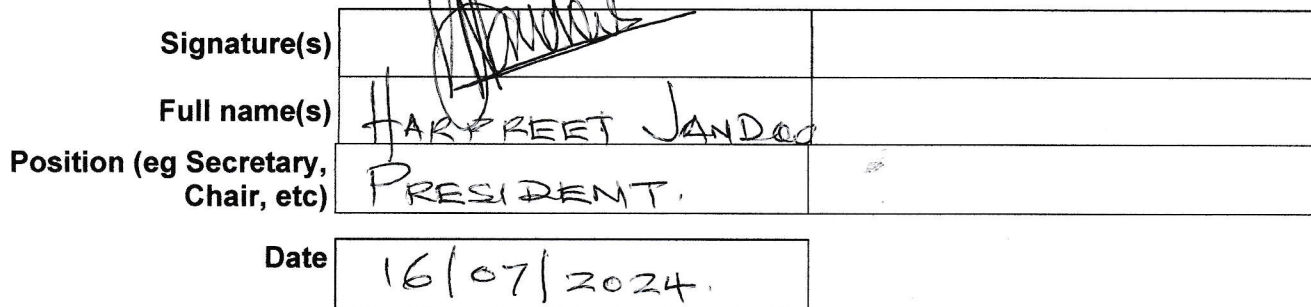 Signature(s)
Full name(s) HARPREET JANDOO
Position (eg Secretary,
Chair, etc) PRESIDENT.
Date 16/07/2024.